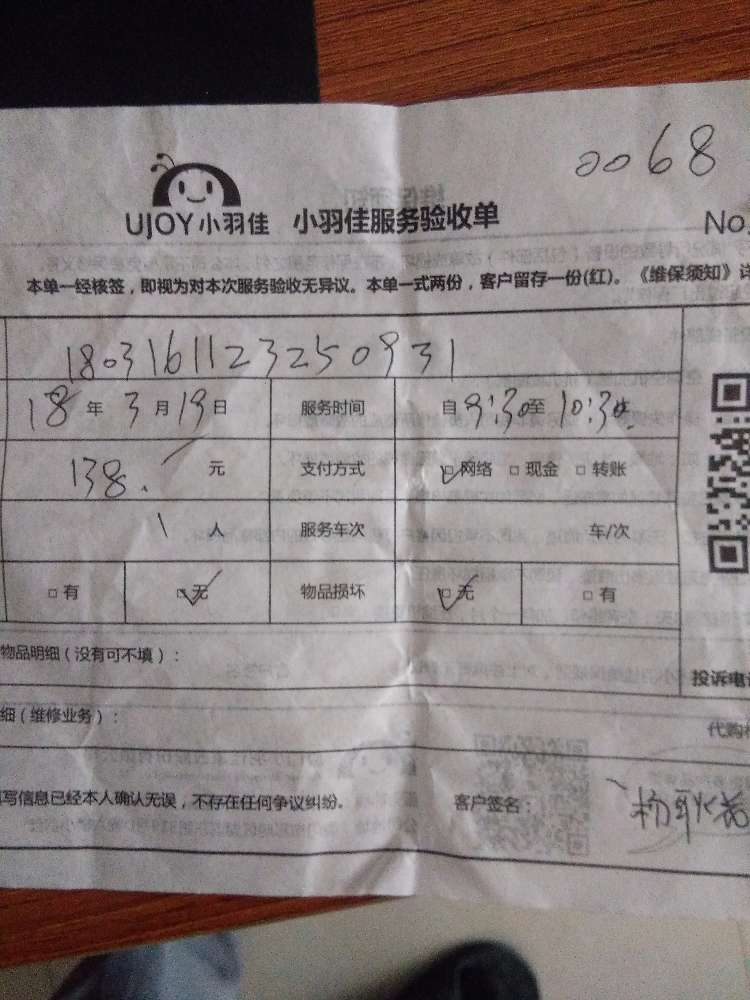 0068
UJOY小羽佳 小羽佳服务验收单 No.
本单一经核签，即视为对本次服务验收无异议。本单一式两份，客户留存一份(红)。《维保须知》详
18031611232509 31
18年3月19日 服务时间 自9:30至10:30
138. 元 支付方式 网络 现金 转账
1人 服务车次 车/次
有 无 物品损坏 无 有
物品明细（没有可不填）：
投诉电话
细（维修业务）：
代购材
写信息已经本人确认无误，不存在任何争议纠纷。 客户签名：